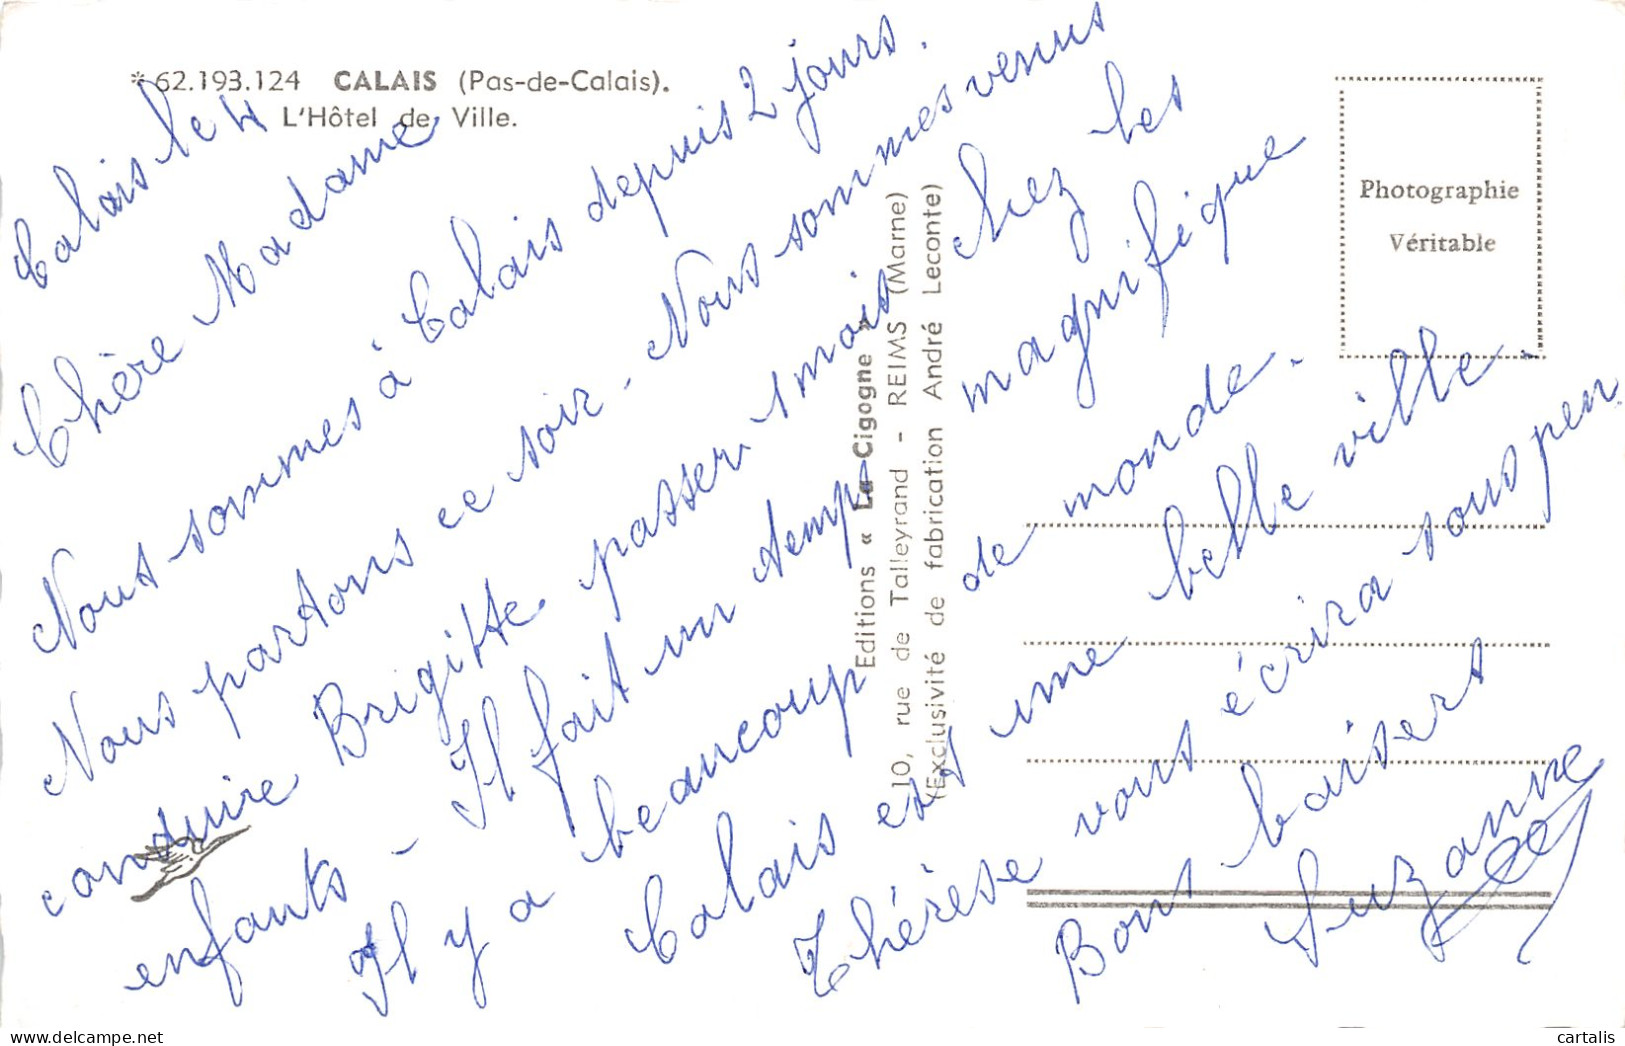 *62.193.124 CALAIS (Pas-de-Calais).
L'Hôtel de Ville.
Calais le 4
Chère Madame
Nous sommes à Calais depuis 2 jours.
Nous partons ce soir - Nous sommes venus
conduire Brigitte passer 1 mois chez les
enfants - Il fait un temps magnifique
Il y a beaucoup de monde.
Calais est une belle ville.
Thérèse vous écrira sous peu
Bons baisers
Suzanne
Editions « La Cigogne »
10, rue de Talleyrand - REIMS (Marne)
(Exclusivité de fabrication André Leconte)
Photographie
Véritable
cartalis delcampe.net